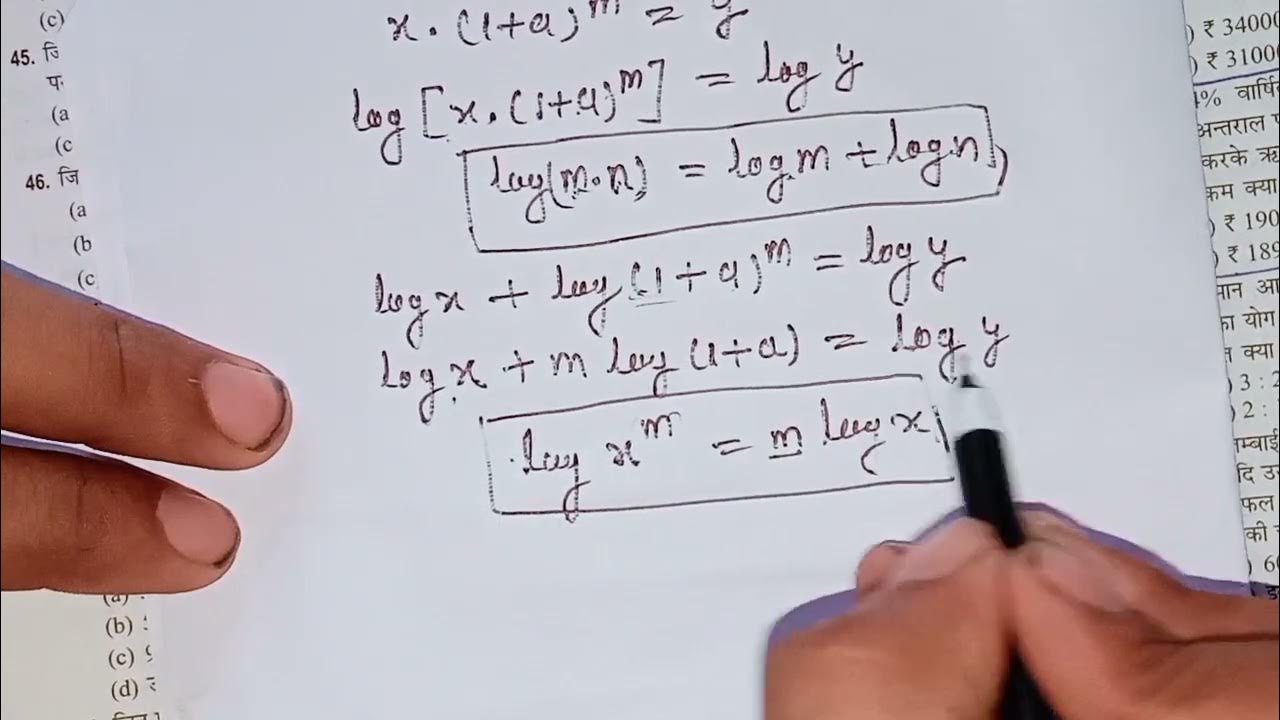 (c)
45. जि
प
(a
(c
46. जि
(a
(b
(c
(a)
(b)
(c)
(d) ₹
x.(1+a)^m = y
log[x.(1+a)^m] = log y
log(m.n) = log m + log n
log x + log(1+a)^m = log y
log x + m log(1+a) = log y
log x^m = m log x
) ₹ 3400
) ₹ 3100
4% वार्षि
अन्तराल
करके ऋ
कम क्या
) ₹ 190
) ₹ 189
मान आ
का योग
क्या
) 3 : 2
) 2 :
म्बाई
दि उ
फल
की
) 6